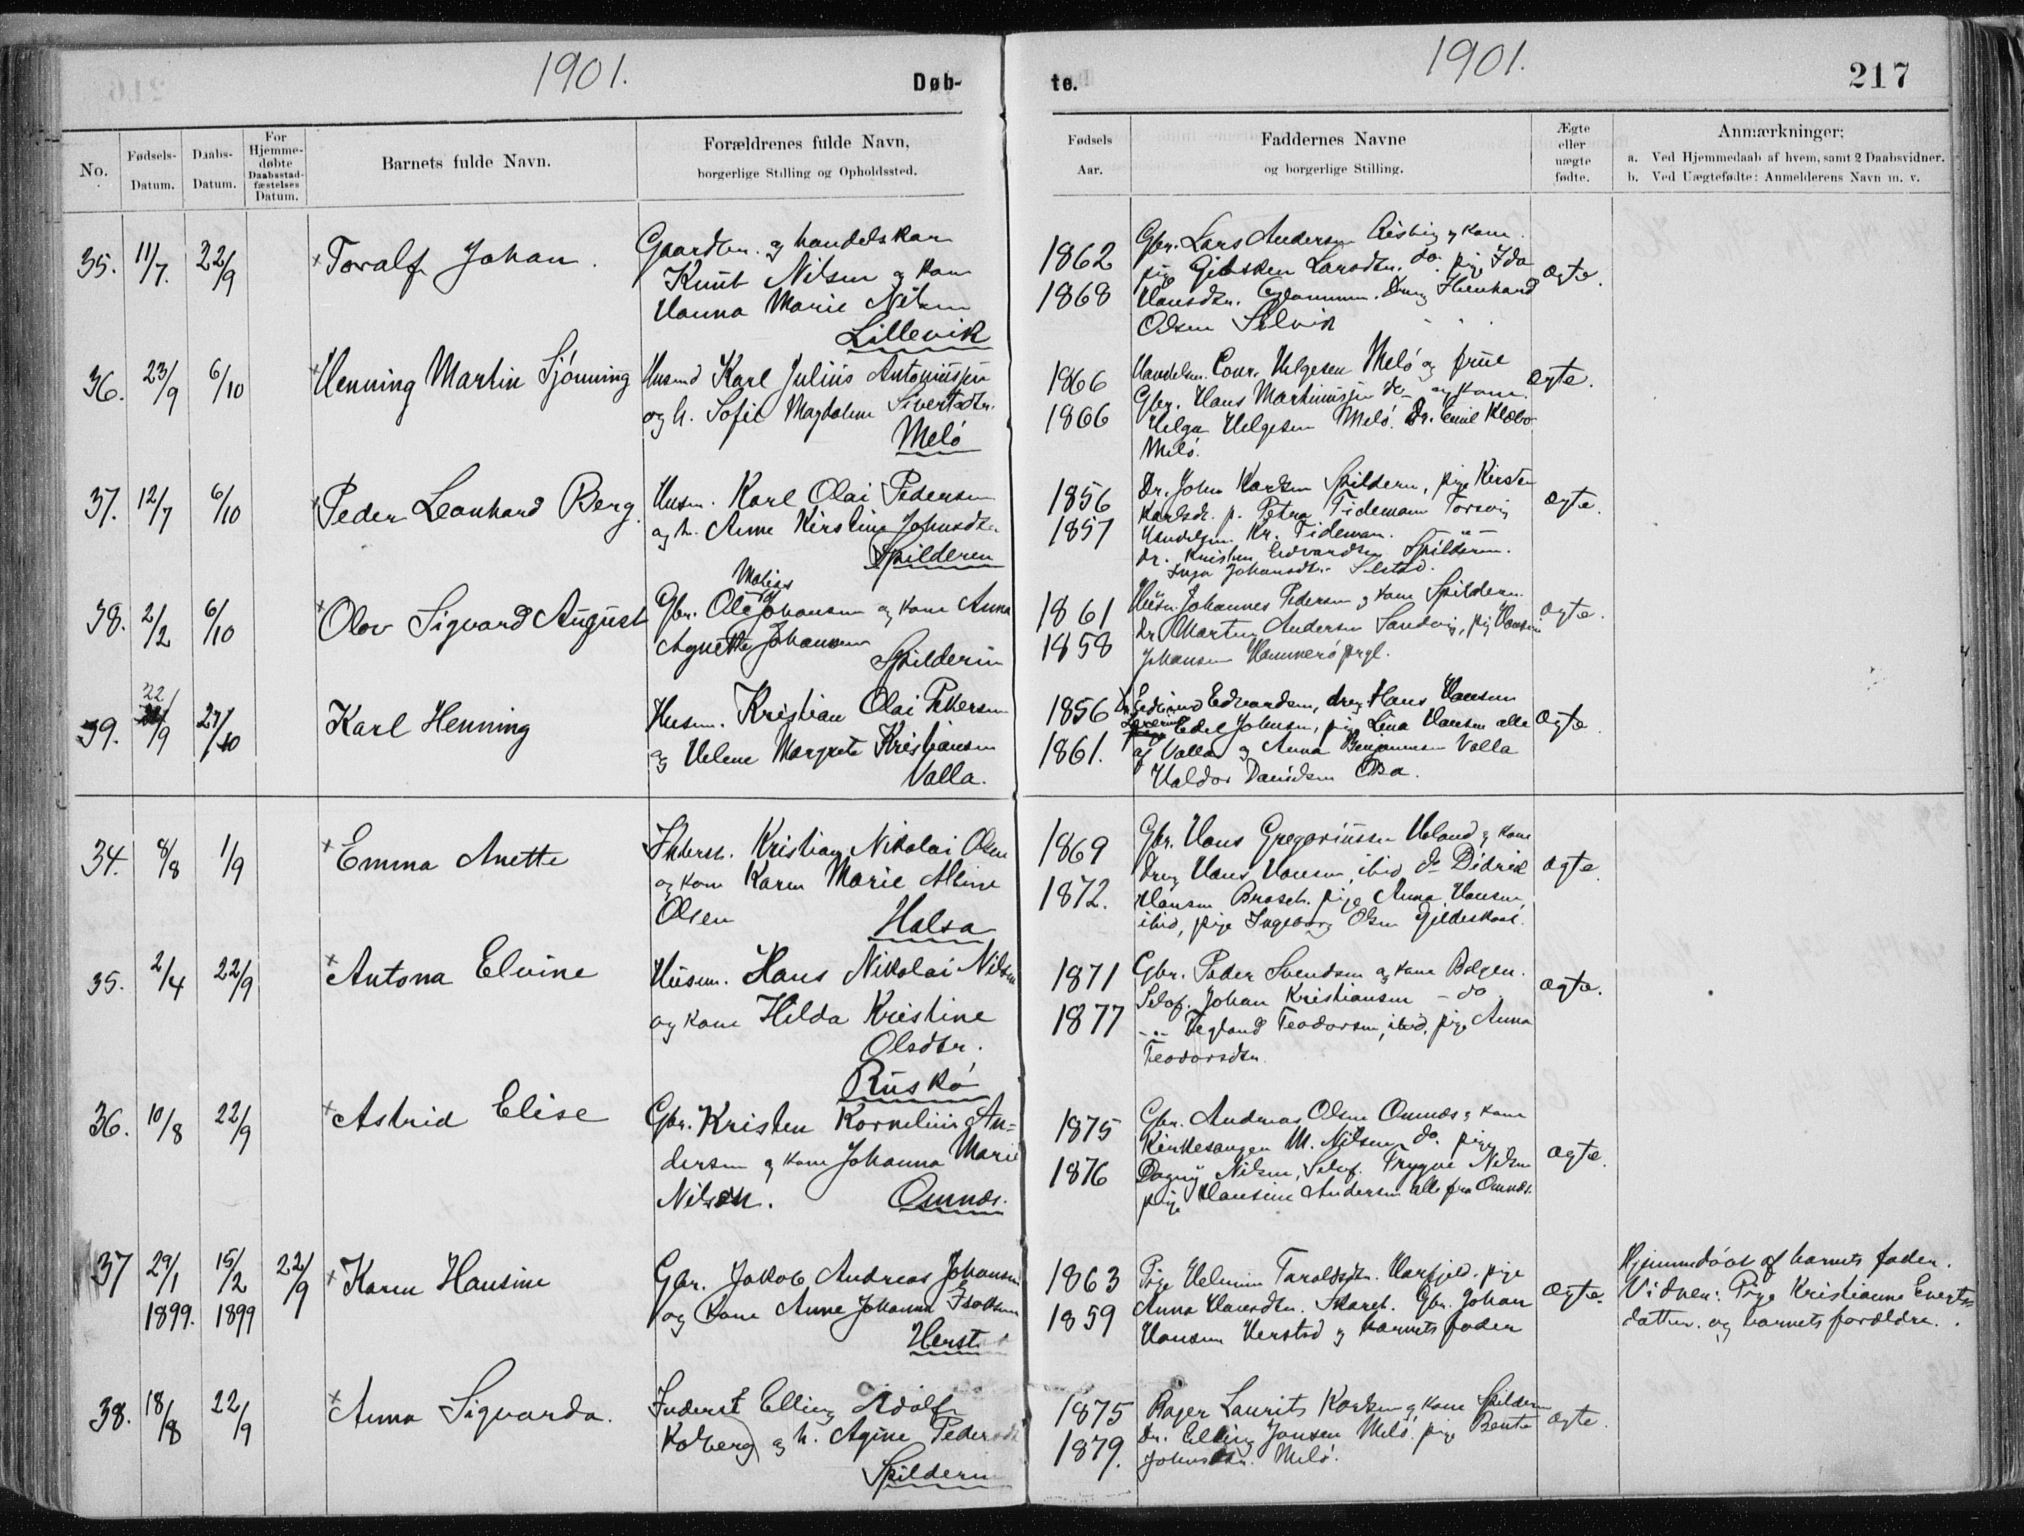 1901.
Døb-
No.
Fødsels-
Datum.
Daabs-
Datum.
For
Hjemme-
døbte
Daabsstad-
fæstelses
Datum.
Barnets fulde Navn.
Forældrenes fulde Navn,
borgerlige Stilling og Opholdssted.
35. 11/7. 22/9 Toralf Johan.
Gaardbr. og handelskar
Knut Nilsen og kone
Hanna Marie Nilsen
Lillevik
36. 23/9 6/10 Henning Martin Sjønning
Husmd Karl Julius Antoniussen
og h. Sofie Magdalene Sivertsdtr.
Melö
37. 12/7 6/10 Peder Leonhard Berg.
Husm. Karl Olai Pedersen
og h. Anne Kirstine Johnsdtr.
Spilderen
38. 2/2 6/10 Olov Sigvard August
Gbr. Ole Johansen og kone Anna
Agnette Johansen
Spilderen
39. 22/9 27/10 Karl Henning
Husm. Kristian Olai Pedersen
og Helene Margrete Kristiansen
Valla.
34. 8/8 1/9 Emma Anette
Kristian Nikolai Olsen
og kone Karen Marie Aline
Olsen
Halsa
35. 2/4 22/9 Antona Elvine
Husm. Hans Nikolai Nilsen
og kone Hilda Kristine
Olsdtr.
Ruskö
36. 10/8 22/9 Astrid Elise
Gbr. Kristen Kornelius An=
dersen og kone Johanna Marie
Nilsen.
Osnnæs.
37 29/1 1899. 15/2 1899 22/9 Karen Hansine
Gbr. Jakob Andreas Johansen
og kone Anne Johanna
Herst
38. 18/8 22/9 Anna Sigvarda.
Inderst Elling Adolf
Kolberg og h. Agine Peders
Spilderen
te.
1901.
217
Fødsels
Aar.
Faddernes Navne
og borgerlige Stilling.
Ægte
eller
uægte
fødte.
Anmærkninger;
a. Ved Hjemmedaab af hvem, samt 2 Daabsvidner.
b. Ved Uægtefødte: Anmelderens Navn m. v.
1862
1868
Gbr. Lars Andersen og kone.
pige Larsdtr. do. pige Ida
Hansdtr.
Olsen Selvik
ægte.
1866
1866
Handelsm. Conr. Helgesen Melö og frue
Gbr. Hans Martinussen do og kone.
Helga Helgesen Melö. Dr. Emil Klæbo
Melö.
ægte.
1856
1857
Dr. John Karlsen Spilderen, pige Kirsten
Karlsdr. p. Petra Tidemann Torsvig
Handelsm. Kr. Tideman.
Dr. Kristen Edvardsen Spilderen.
Inga Johansdtr.
ægte.
1861
1858
Husm. Johannes Pedersen og kone Spilderen.
Dr. Martin Andersen Sandvig, pige
Johansen prgl.
ægte.
1856
1861.
Edvardsen, dreng Hans Hansen
Edel Johnsen, pige Lina Hansen alle
af Valla og Anna Benjaminsen Valla
Haldor Danielsen
ægte
1869
1872.
Gbr. Hans Gregoriussen og kone
dreng Hans Hansen, ibid do Didrik
Hansen Brasch. pige Anna Hansen,
ibid, pige Ingeborg Olsen Gildeskaal.
ægte.
1871
1877
Gbr. Peder Svendsen og kone Bolgen.
Selvf. Johan Kristiansen - do
Teodorsen, ibid, pige Anna
Teodorsdtr.
ægte.
1875
1876
Gbr. Andreas Olsen og kone
Kirkesanger M. Nilsen do. pige
Dagny Nilsen, Selvf. Trygve Nilsen
pige Hansine Andersen alle fra
ægte.
1863
1859
Pige Taraldsdtr. pige
Anna Hansdtr. Skaret. Gbr. Johan
Hansen Herstad og barnets fader
ægte.
Hjemmedöbt af barnets fader.
Vidner: Pige Kristianne Everts
datter. og barnets forældre.
1875
1879.
Bager Laurits Karlsen og kone Spilderen
Dr. Elling Jansen Melö. pige Bente
Melö.
ægte.